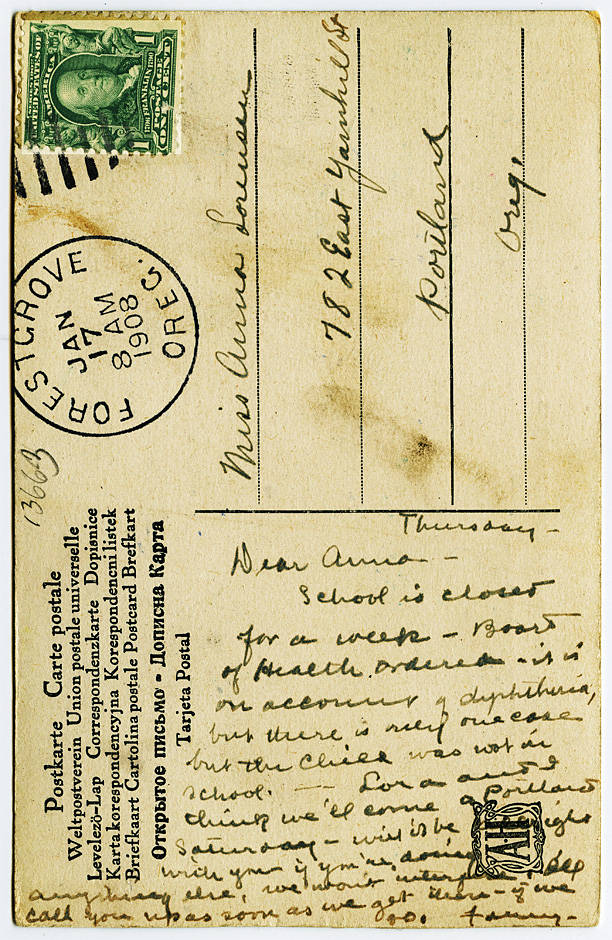 Postkarte Carte postale
Weltpostverein Union postale universelle
Levelező-Lap Correspondenzkarte Dopisnice
Karta korespondencyjna Korespondencni listek
Briefkaart Cartolina postale Postcard Brefkart
Открытое письмо - Дописна Карта
Tarjeta Postal
13663
SERIES 1902
UNITED STATES OF AMERICA
1706 FRANKLIN 1790
POSTAGE
1 ONE CENT 1
FOREST GROVE
JAN
17
8 AM
1908
OREG.
Miss Anna Lorensen
782 East Yamhill St
Portland
Oreg.
Thursday-
Dear Anna-
School is closed
for a week - Board
of Health ordered - it is
on account of diphtheria,
but there is only one case
but the child was not in
school. — Lora and I
think we'll come to Portland
Saturday - will be alright
with you if you're doing
anything else, we won't - I'll
call you up as soon as we get there - if we
go. Fanny-
AH